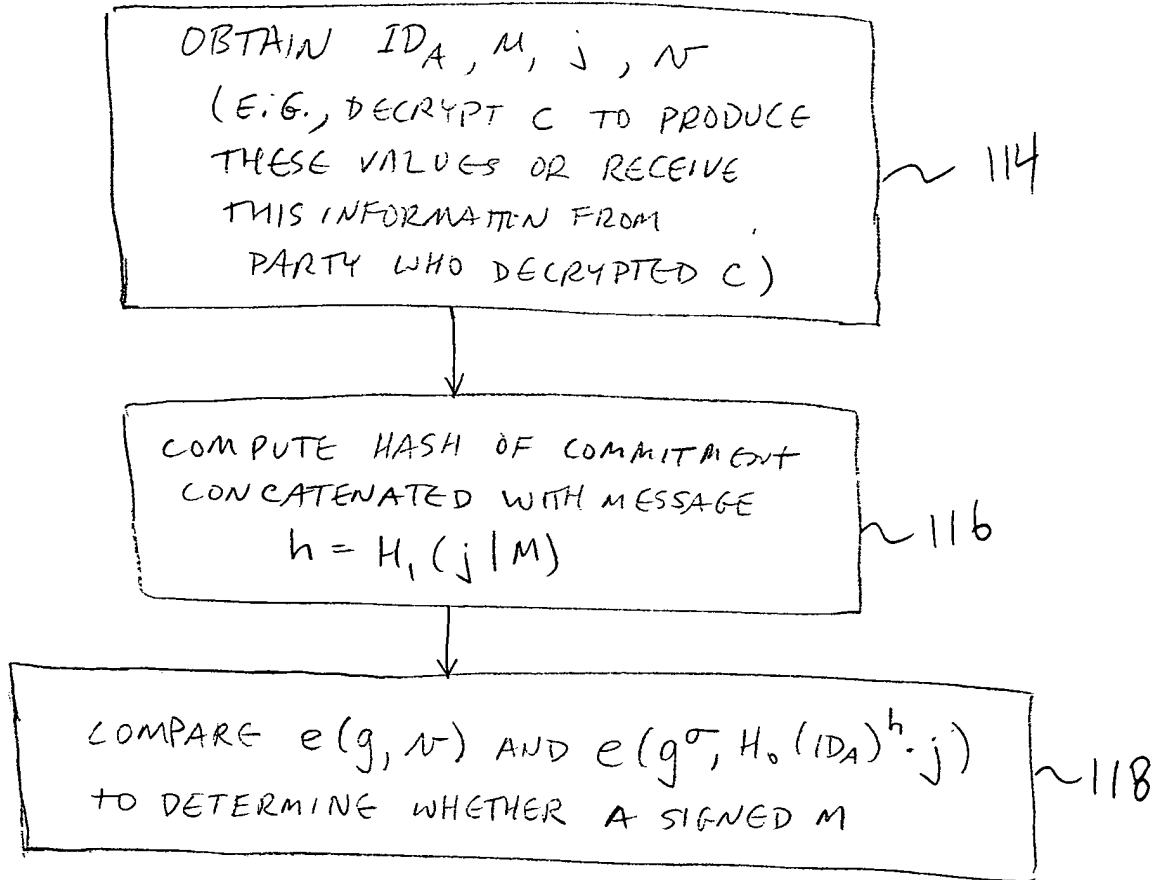 OBTAIN ID_A, M, j, v
(E.G., DECRYPT C TO PRODUCE
THESE VALUES OR RECEIVE
THIS INFORMATION FROM
PARTY WHO DECRYPTED C)
114
COMPUTE HASH OF COMMITMENT
CONCATENATED WITH MESSAGE
h = H₁(j|M)
116
COMPARE e(g, v) AND e(g^σ, H₀(ID_A)^h · j)
TO DETERMINE WHETHER A SIGNED M
118